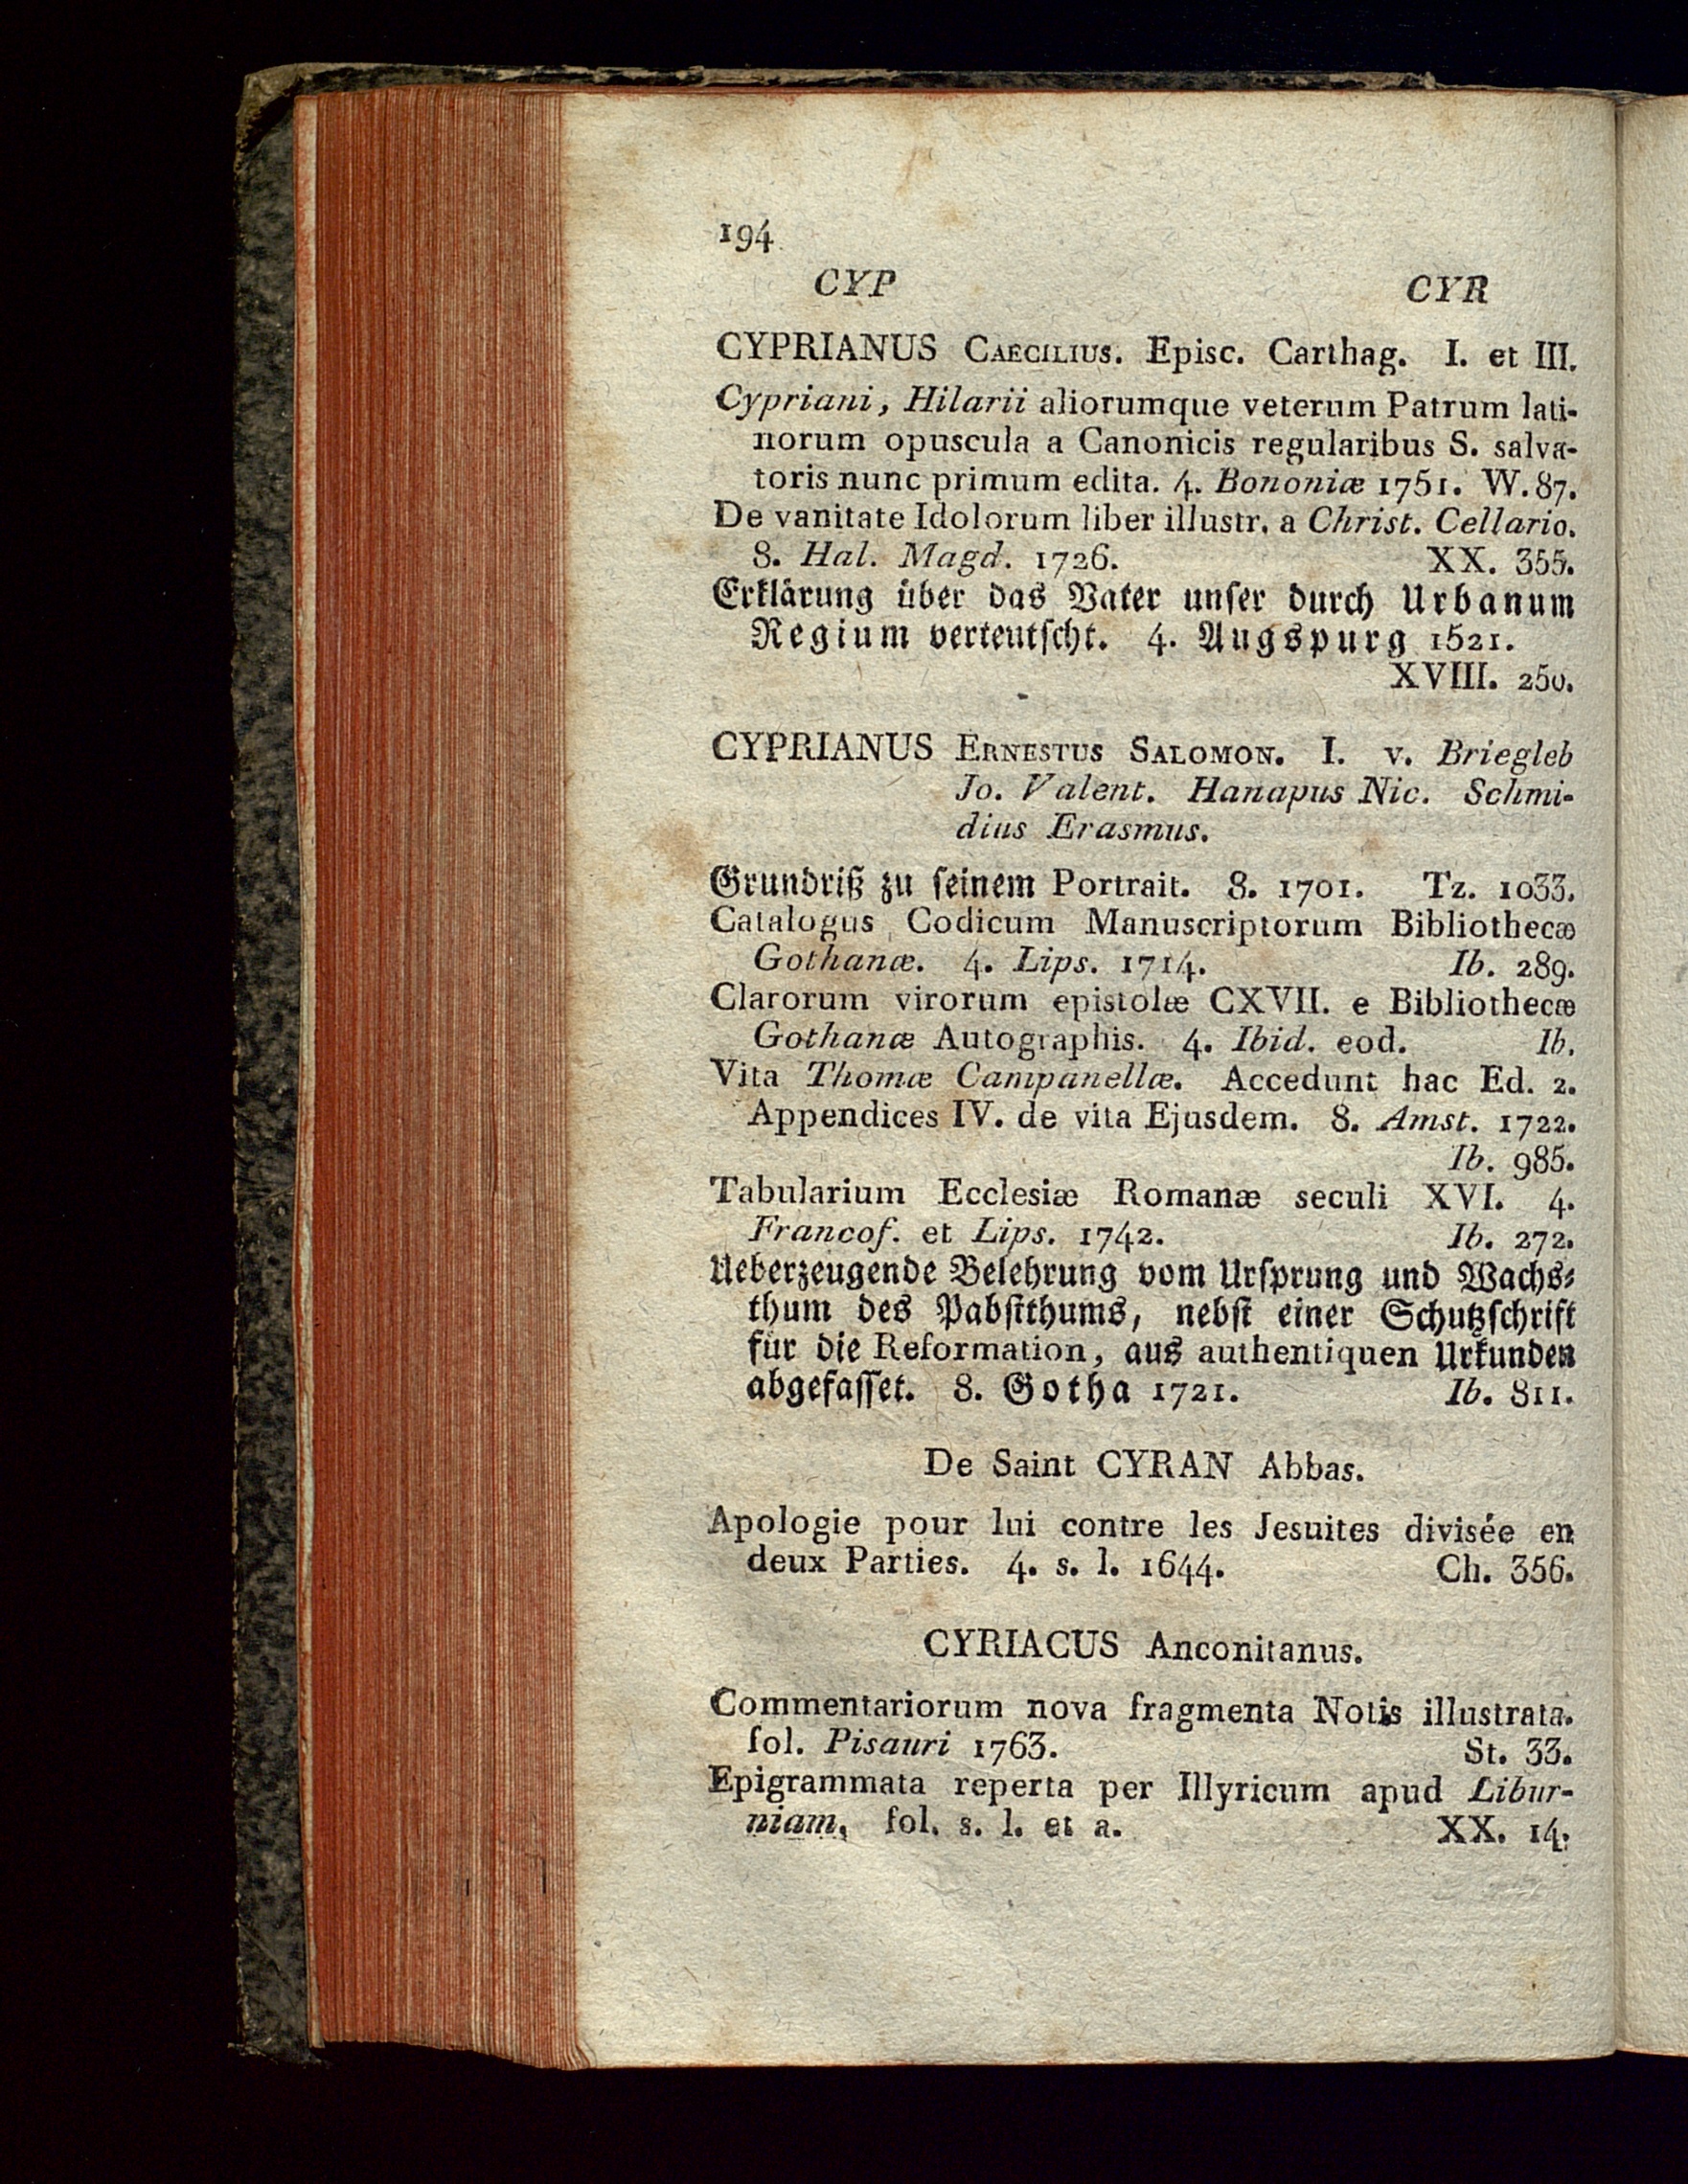 194
CYP CYR
CYPRIANUS CAECILIUS. Episc. Carthag. I. et III.
Cypriani, Hilarii aliorumque veterum Patrum lati-
norum opuscula a Canonicis regularibus S. salva-
toris nunc primum edita. 4. Bononiæ 1751. W. 87.
De vanitate Idolorum liber illustr. a Christ. Cellario.
8. Hal. Magd. 1726. XX. 355.
Erklärung über das Vater unser durch Urbanum
Regium verteutscht. 4. Augspurg 1521.
XVIII. 250.
CYPRIANUS ERNESTUS SALOMON. I. v. Briegleb
Jo. Valent. Hanapus Nic. Schmi-
dius Erasmus.
Grundriß zu seinem Portrait. 8. 1701. Tz. 1033.
Catalogus Codicum Manuscriptorum Bibliothecæ
Gothanæ. 4. Lips. 1714. Ib. 289.
Clarorum virorum epistolæ CXVII. e Bibliothecæ
Gothanæ Autographis. 4. Ibid. eod. Ib.
Vita Thomæ Campanellæ. Accedunt hac Ed. 2.
Appendices IV. de vita Ejusdem. 8. Amst. 1722.
Ib. 985.
Tabularium Ecclesiæ Romanæ seculi XVI. 4.
Francof. et Lips. 1742. Ib. 272.
Ueberzeugende Belehrung vom Ursprung und Wachs-
thum des Pabstthums, nebst einer Schutzschrift
für die Reformation, aus authentiquen Urkunden
abgefasset. 8. Gotha 1721. Ib. 811.
De Saint CYRAN Abbas.
Apologie pour lui contre les Jesuites divisée en
deux Parties. 4. s. l. 1644. Ch. 356.
CYRIACUS Anconitanus.
Commentariorum nova fragmenta Notis illustrata.
fol. Pisauri 1763. St. 33.
Epigrammata reperta per Illyricum apud Libur-
niam, fol. s. l. et a. XX. 14.